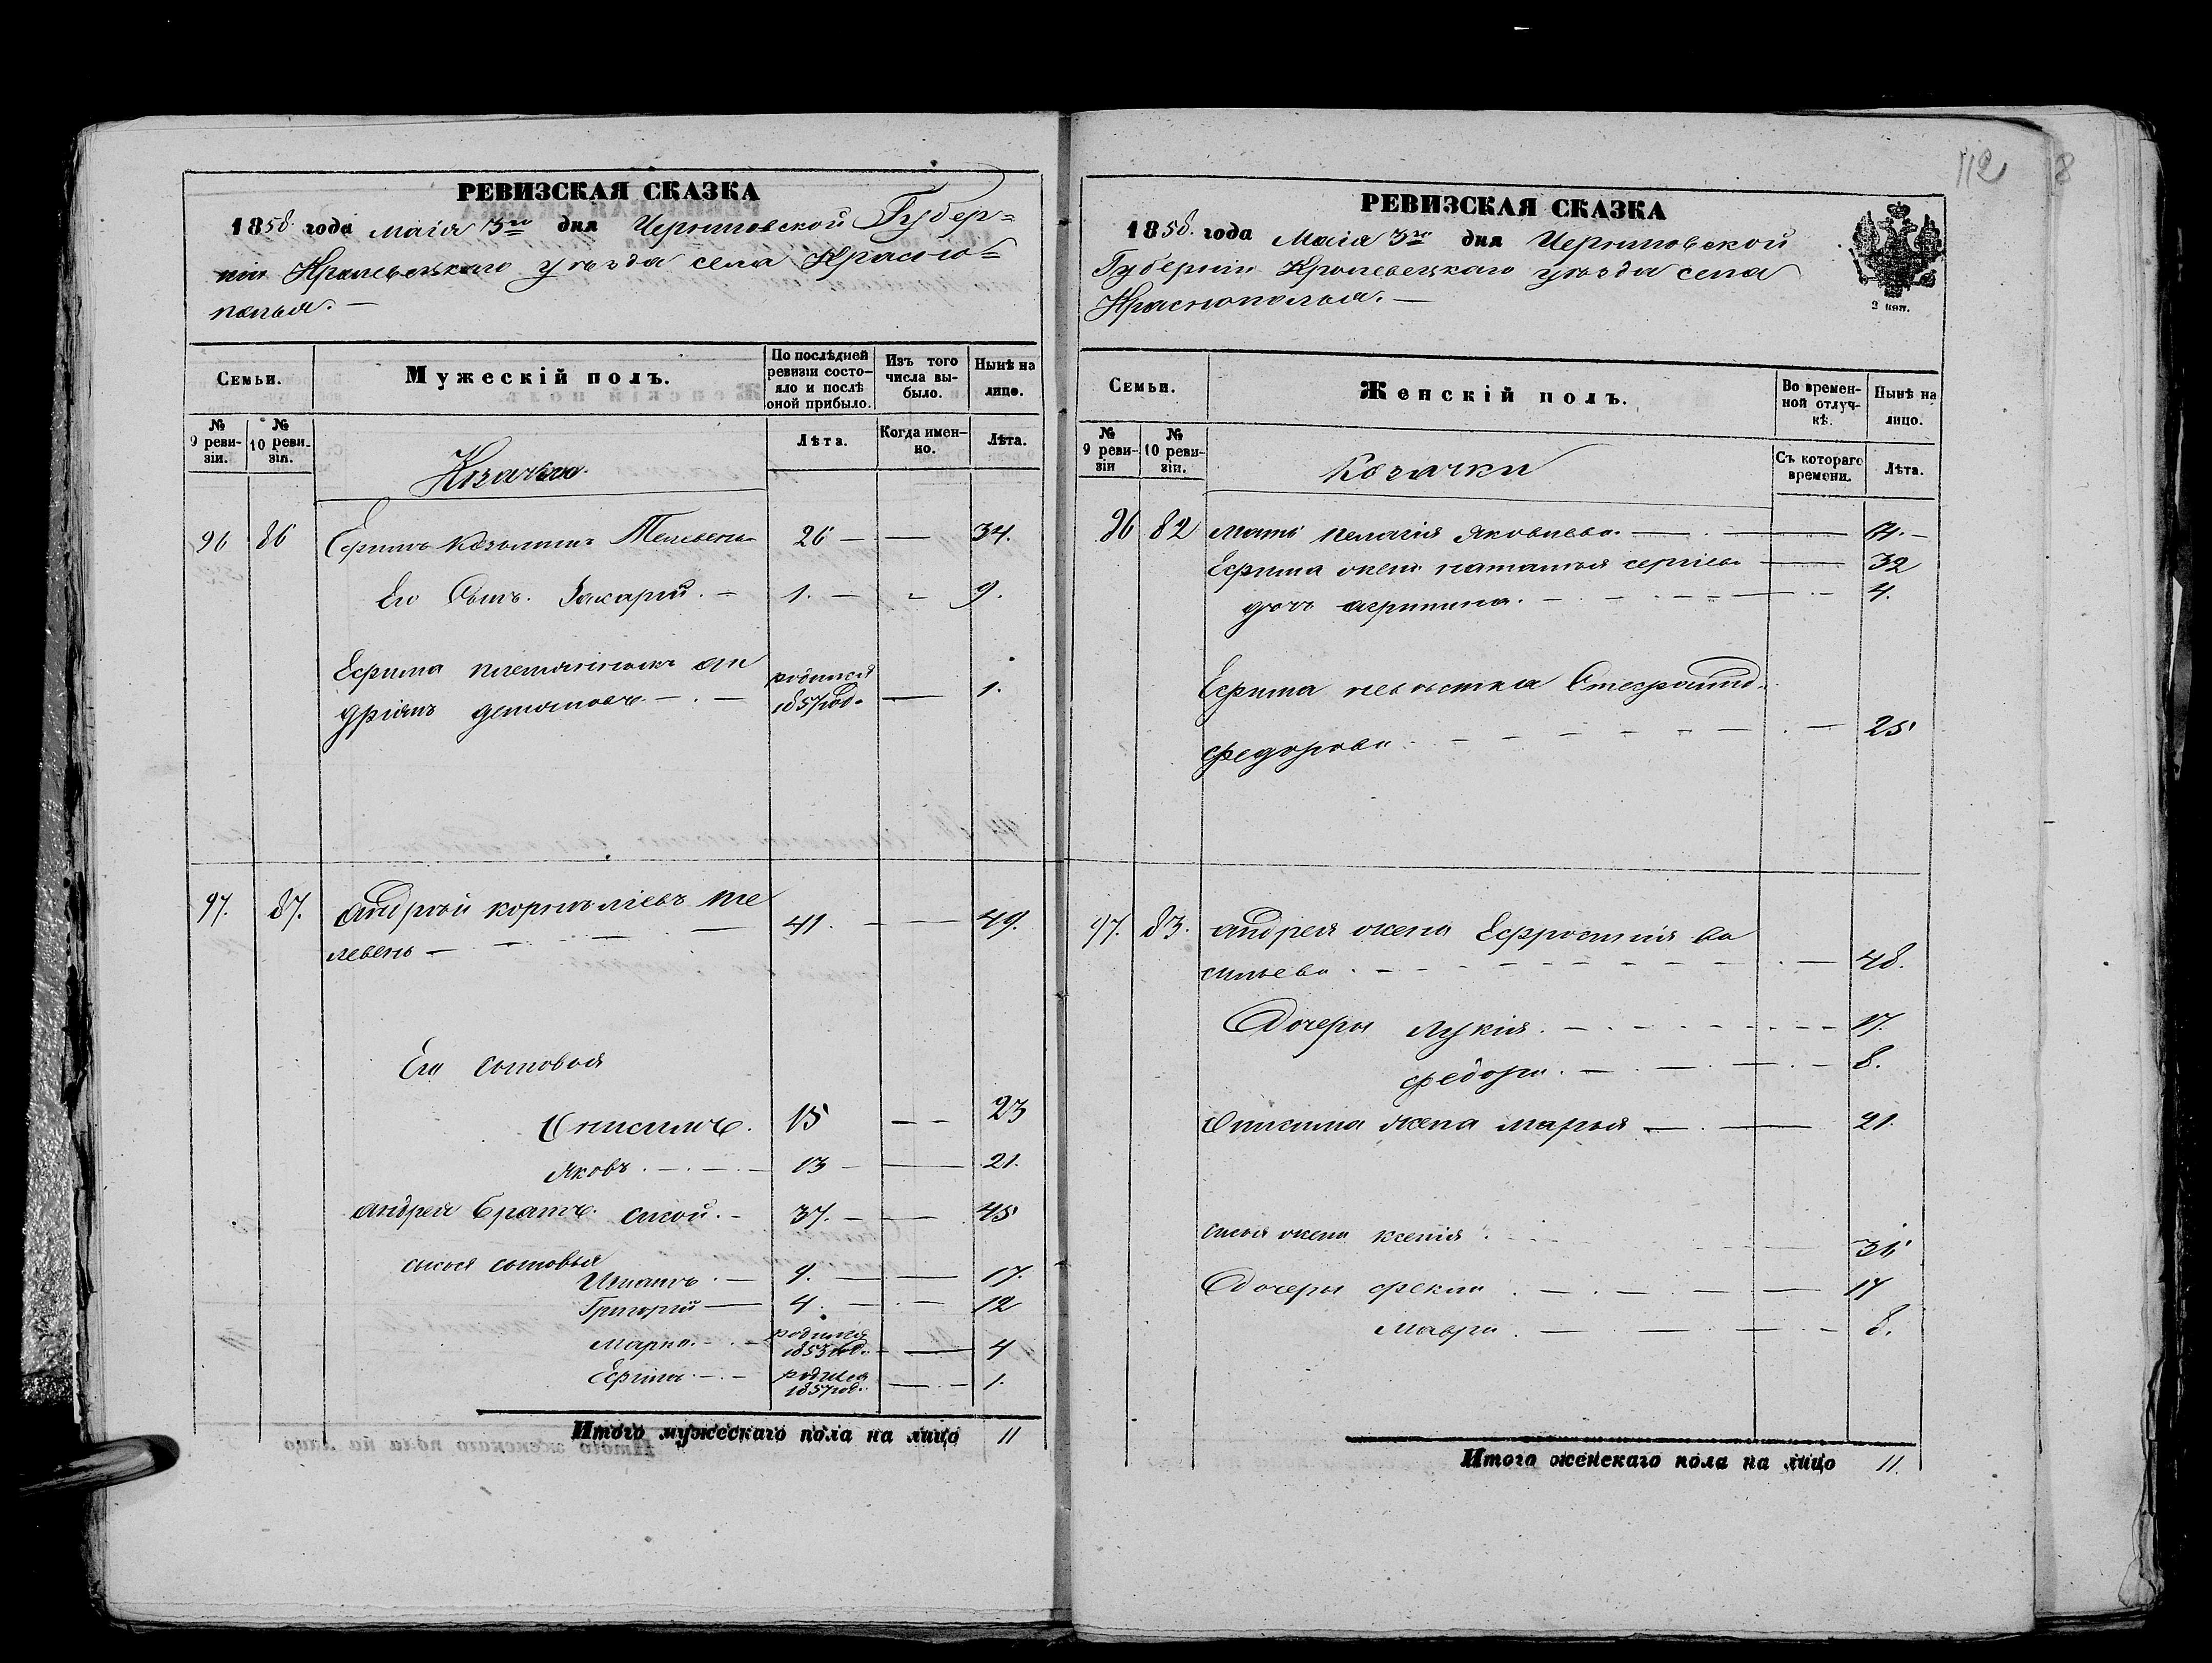 РЕВИЗСКАЯ СКАЗКА
1858 года маія 3го дня Черниговской Губер=
ніи Кролевецкаго уезда села Красно=
полья. —
Семьи.
Мужескій полъ.
По послѣдней ревизіи состояло и послѣ оной прибыло.
Изъ того числа выбыло.
Нынѣ на лицо.
№ 9 ревизіи.
№ 10 ревизіи.
Лѣта.
Когда именно.
Лѣта.
96 86 Ефимъ Козьминъ Телевень 26 — — 34.
Его Сынъ. Захарій. — 1. — - 9.
Ефима племянникъ Ан
дріянъ Демяновъ — родился 1857 год. — 1.
97. 87. Андрей корнѣліевъ те
левень — 41. — — 49.
Его сыновья
Онисимъ. 15 — — 23
Яковъ 13 — — 21.
Андрея братъ. Сисой. — 37. — — 45
Сисоя сыновья
Игнатъ — 9. — — 17.
Григорій — 4. — — 12
Марко. — родился 1853 год. — 4
Ефимъ — родился 1857 год. — 1.
Итого мужескаго пола на лицо 11
РЕВИЗСКАЯ СКАЗКА
1858 года Маія 3го дня Черниговской
Губерніи Кролевецкаго уезда села
Краснополья. —
2 коп.
112
8
Семьи.
Женскій полъ.
Во временной отлучкѣ.
Нынѣ на лицо.
№ 9 ревизіи
№ 10 ревизіи.
Козачки
Съ котораго времени.
Лѣта.
96 82 Мати Пелагія Яковлева. —
Ефима жена наталья сергіева — 32
дочь агрипина. — 4.
Ефима невѣстка Стефанид.
федорова — 25
97. 83. андрея жена Ефросинія ва
сильева — 48.
Дочеры Лукія. — 17.
федора. — 8.
Онисима жена марья — 21.
Сисоя жена ксенія
Дочеры фекла — 17
Мавра — 8.
Итого женскаго пола на лицо 11.